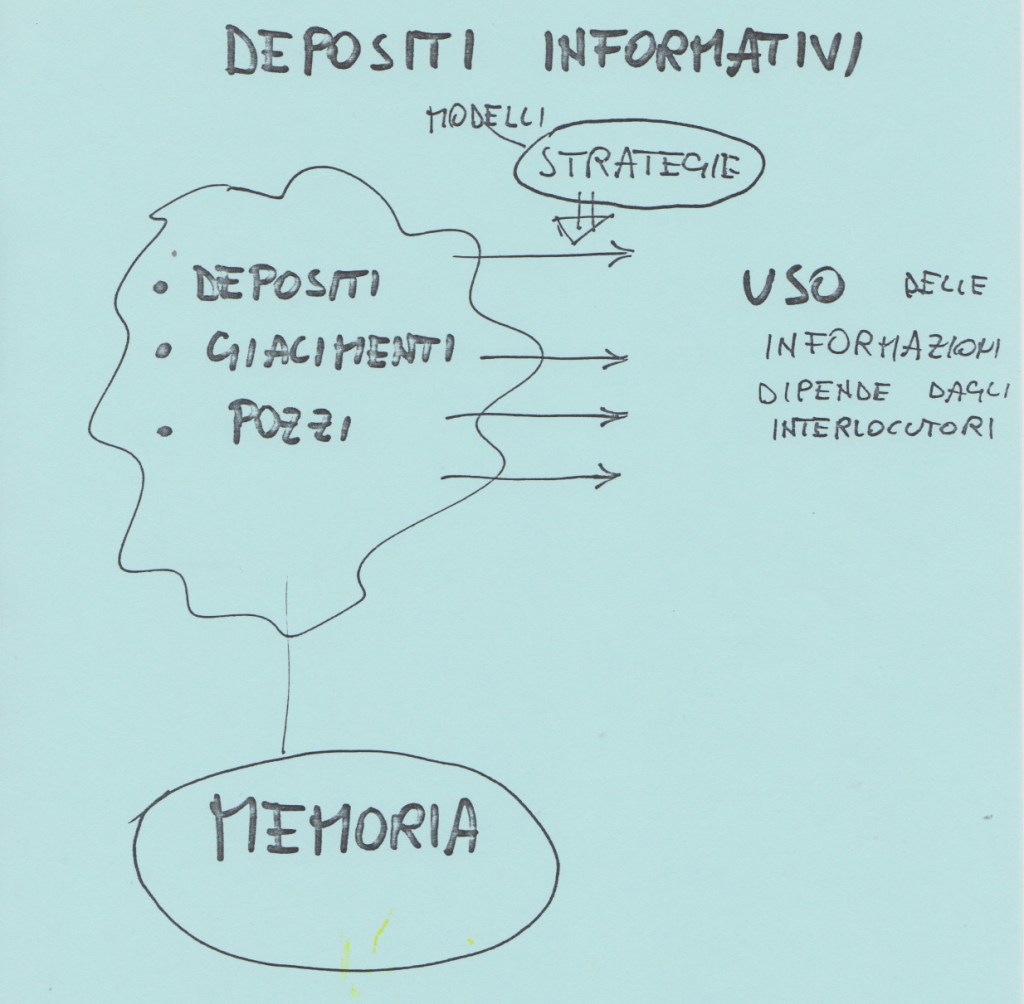 DEPOSITI INFORMATIVI
MODELLI
STRATEGIE
• DEPOSITI
• GIACIMENTI
• POZZI
USO DELLE
INFORMAZIONI
DIPENDE DAGLI
INTERLOCUTORI
MEMORIA